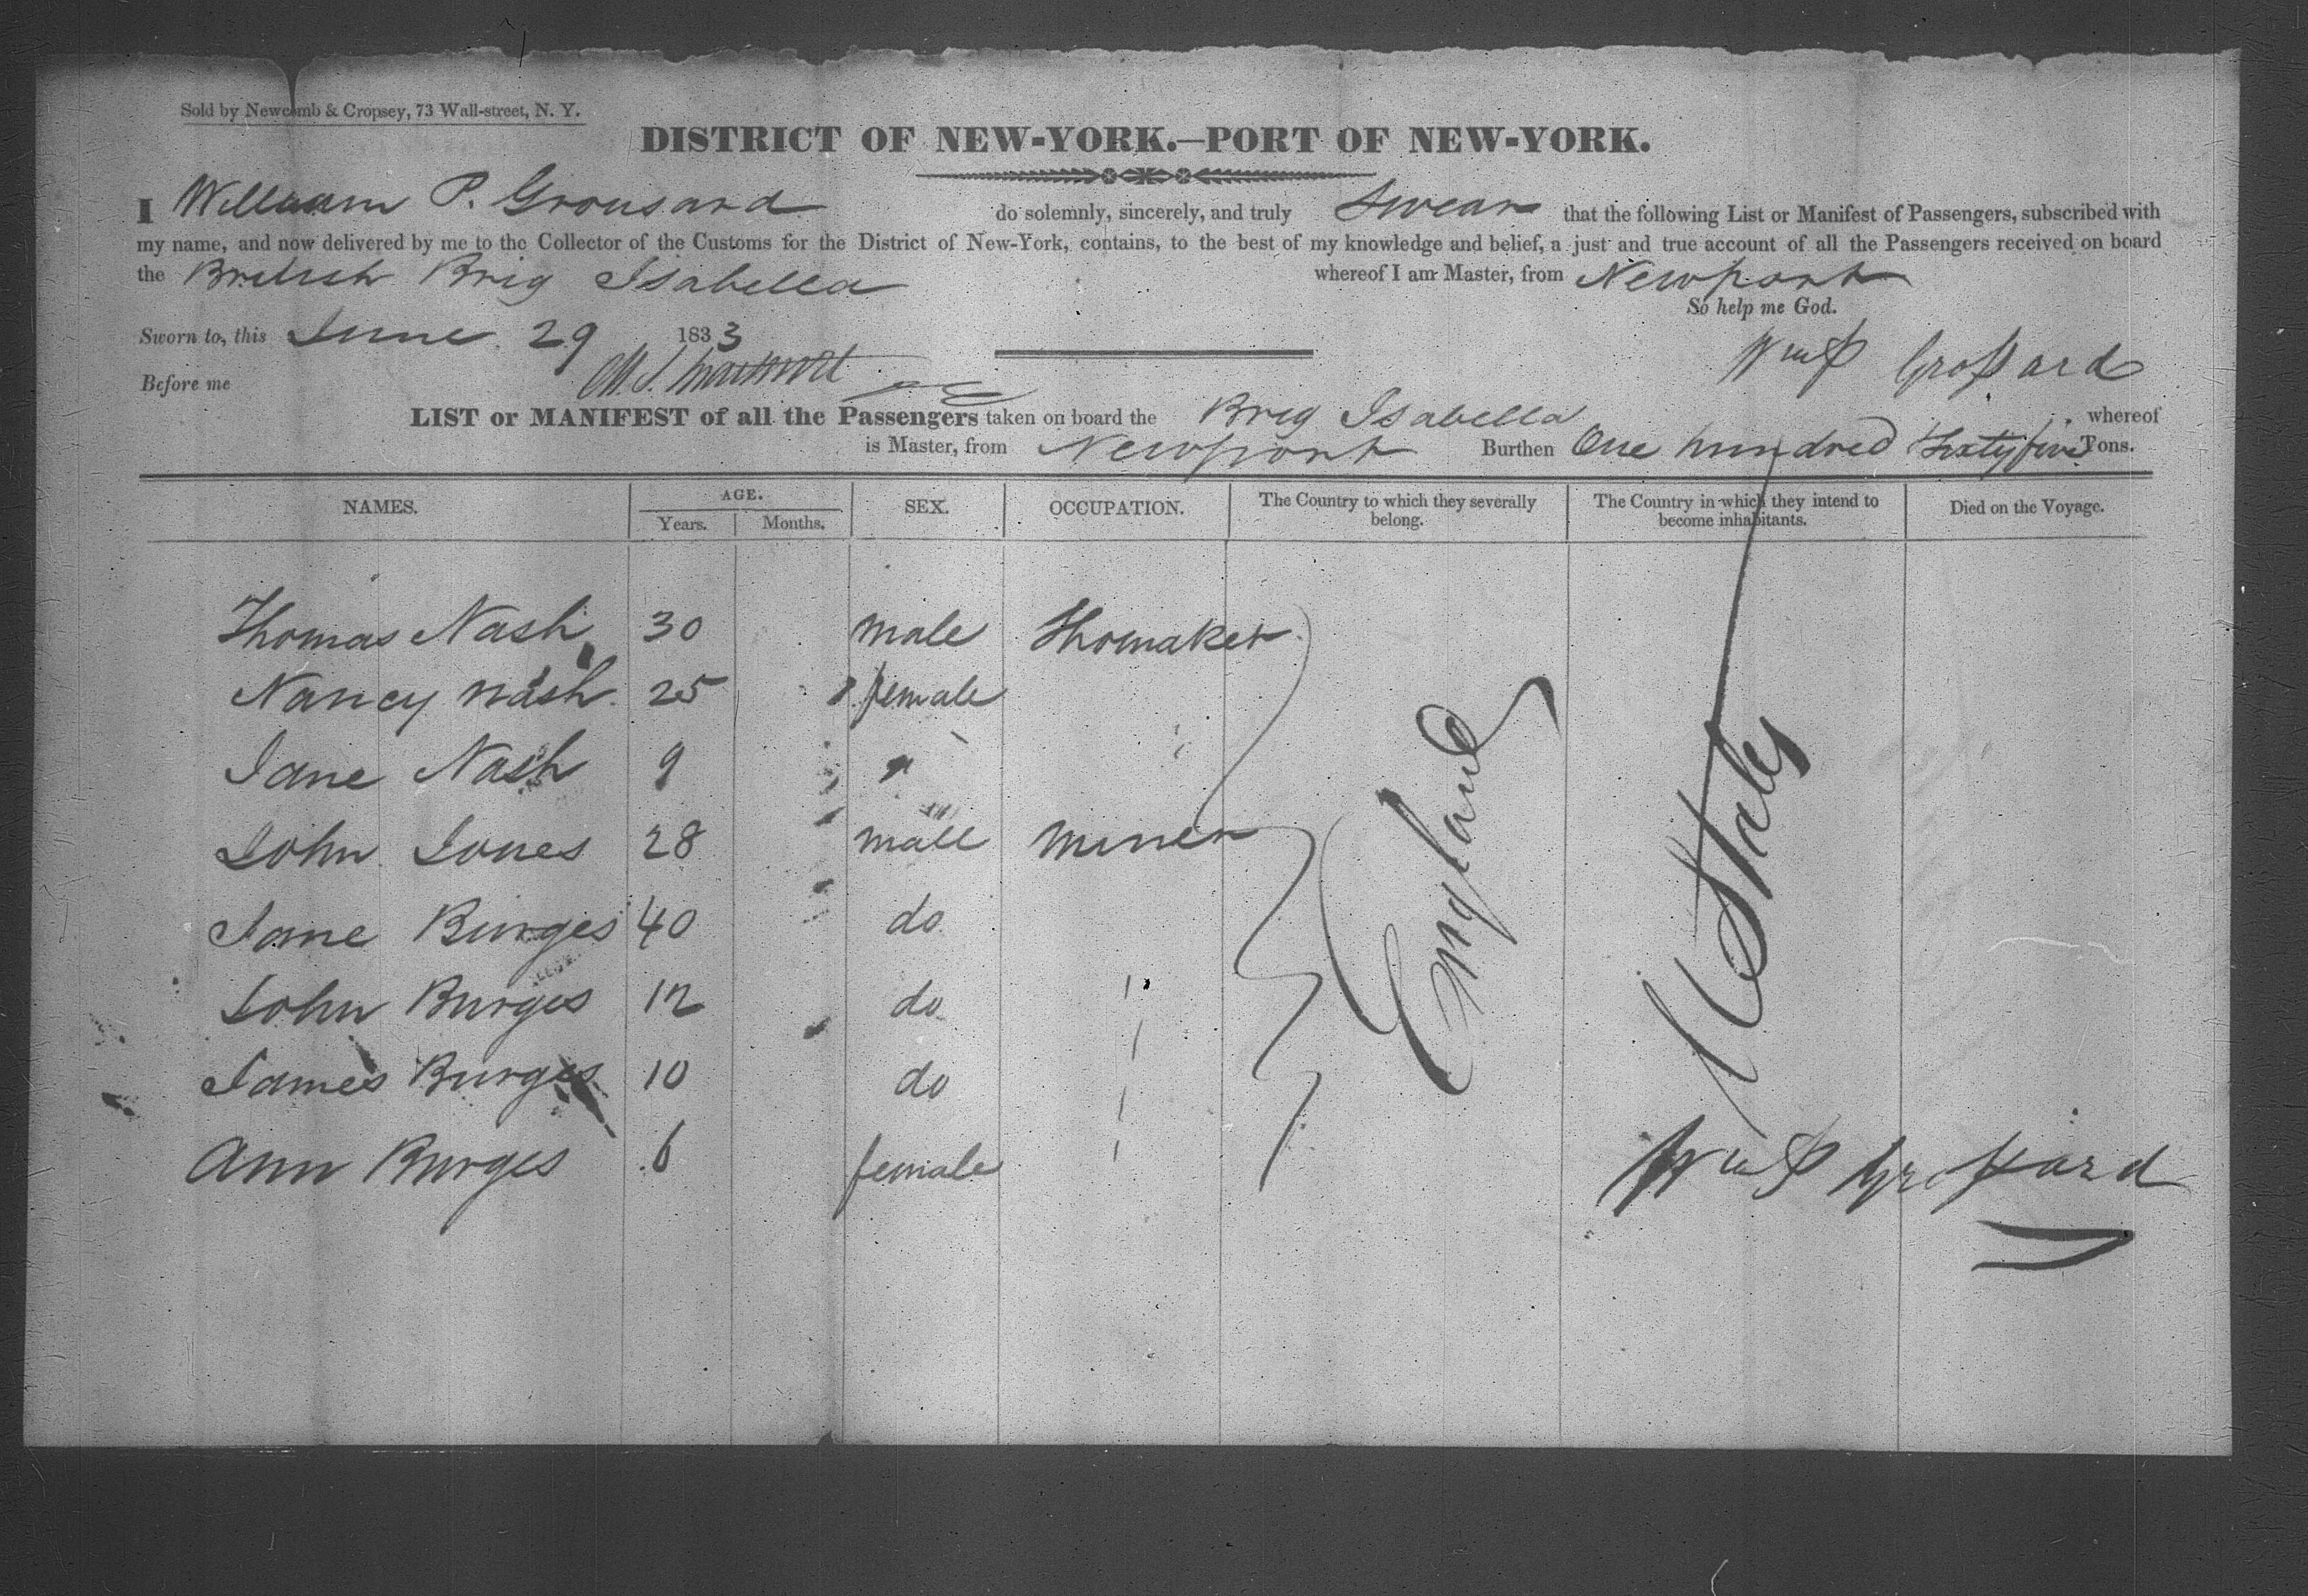 Sold by Newcomb & Cropsey, 73 Wall-street, N. Y.
DISTRICT OF NEW-YORK.—PORT OF NEW-YORK.
I William P. Grousard do solemnly, sincerely, and truly Swear that the following List or Manifest of Passengers, subscribed with
my name, and now delivered by me to the Collector of the Customs for the District of New-York, contains, to the best of my knowledge and belief, a just and true account of all the Passengers received on board
the British Brig Isabella whereof I am Master, from Newport
So help me God.
Sworn to, this June 29 1833
Wm P Grossard
Before me
LIST or MANIFEST of all the Passengers taken on board the Brig Isabella whereof
is Master, from Newport Burthen One hundred Sixty five Tons.
NAMES. AGE. SEX. OCCUPATION. The Country to which they severally belong. The Country in which they intend to become inhabitants. Died on the Voyage.
Years. Months.
Thomas Nash 30 male Shomaker
Nancy Nash 25 female
Jane Nash 9 "
John Jones 28 male Miner
Jane Burges 40 do
John Burges 12 do
James Burges 10 do
Ann Burges 6 female
England
U States
Wm P Grossard